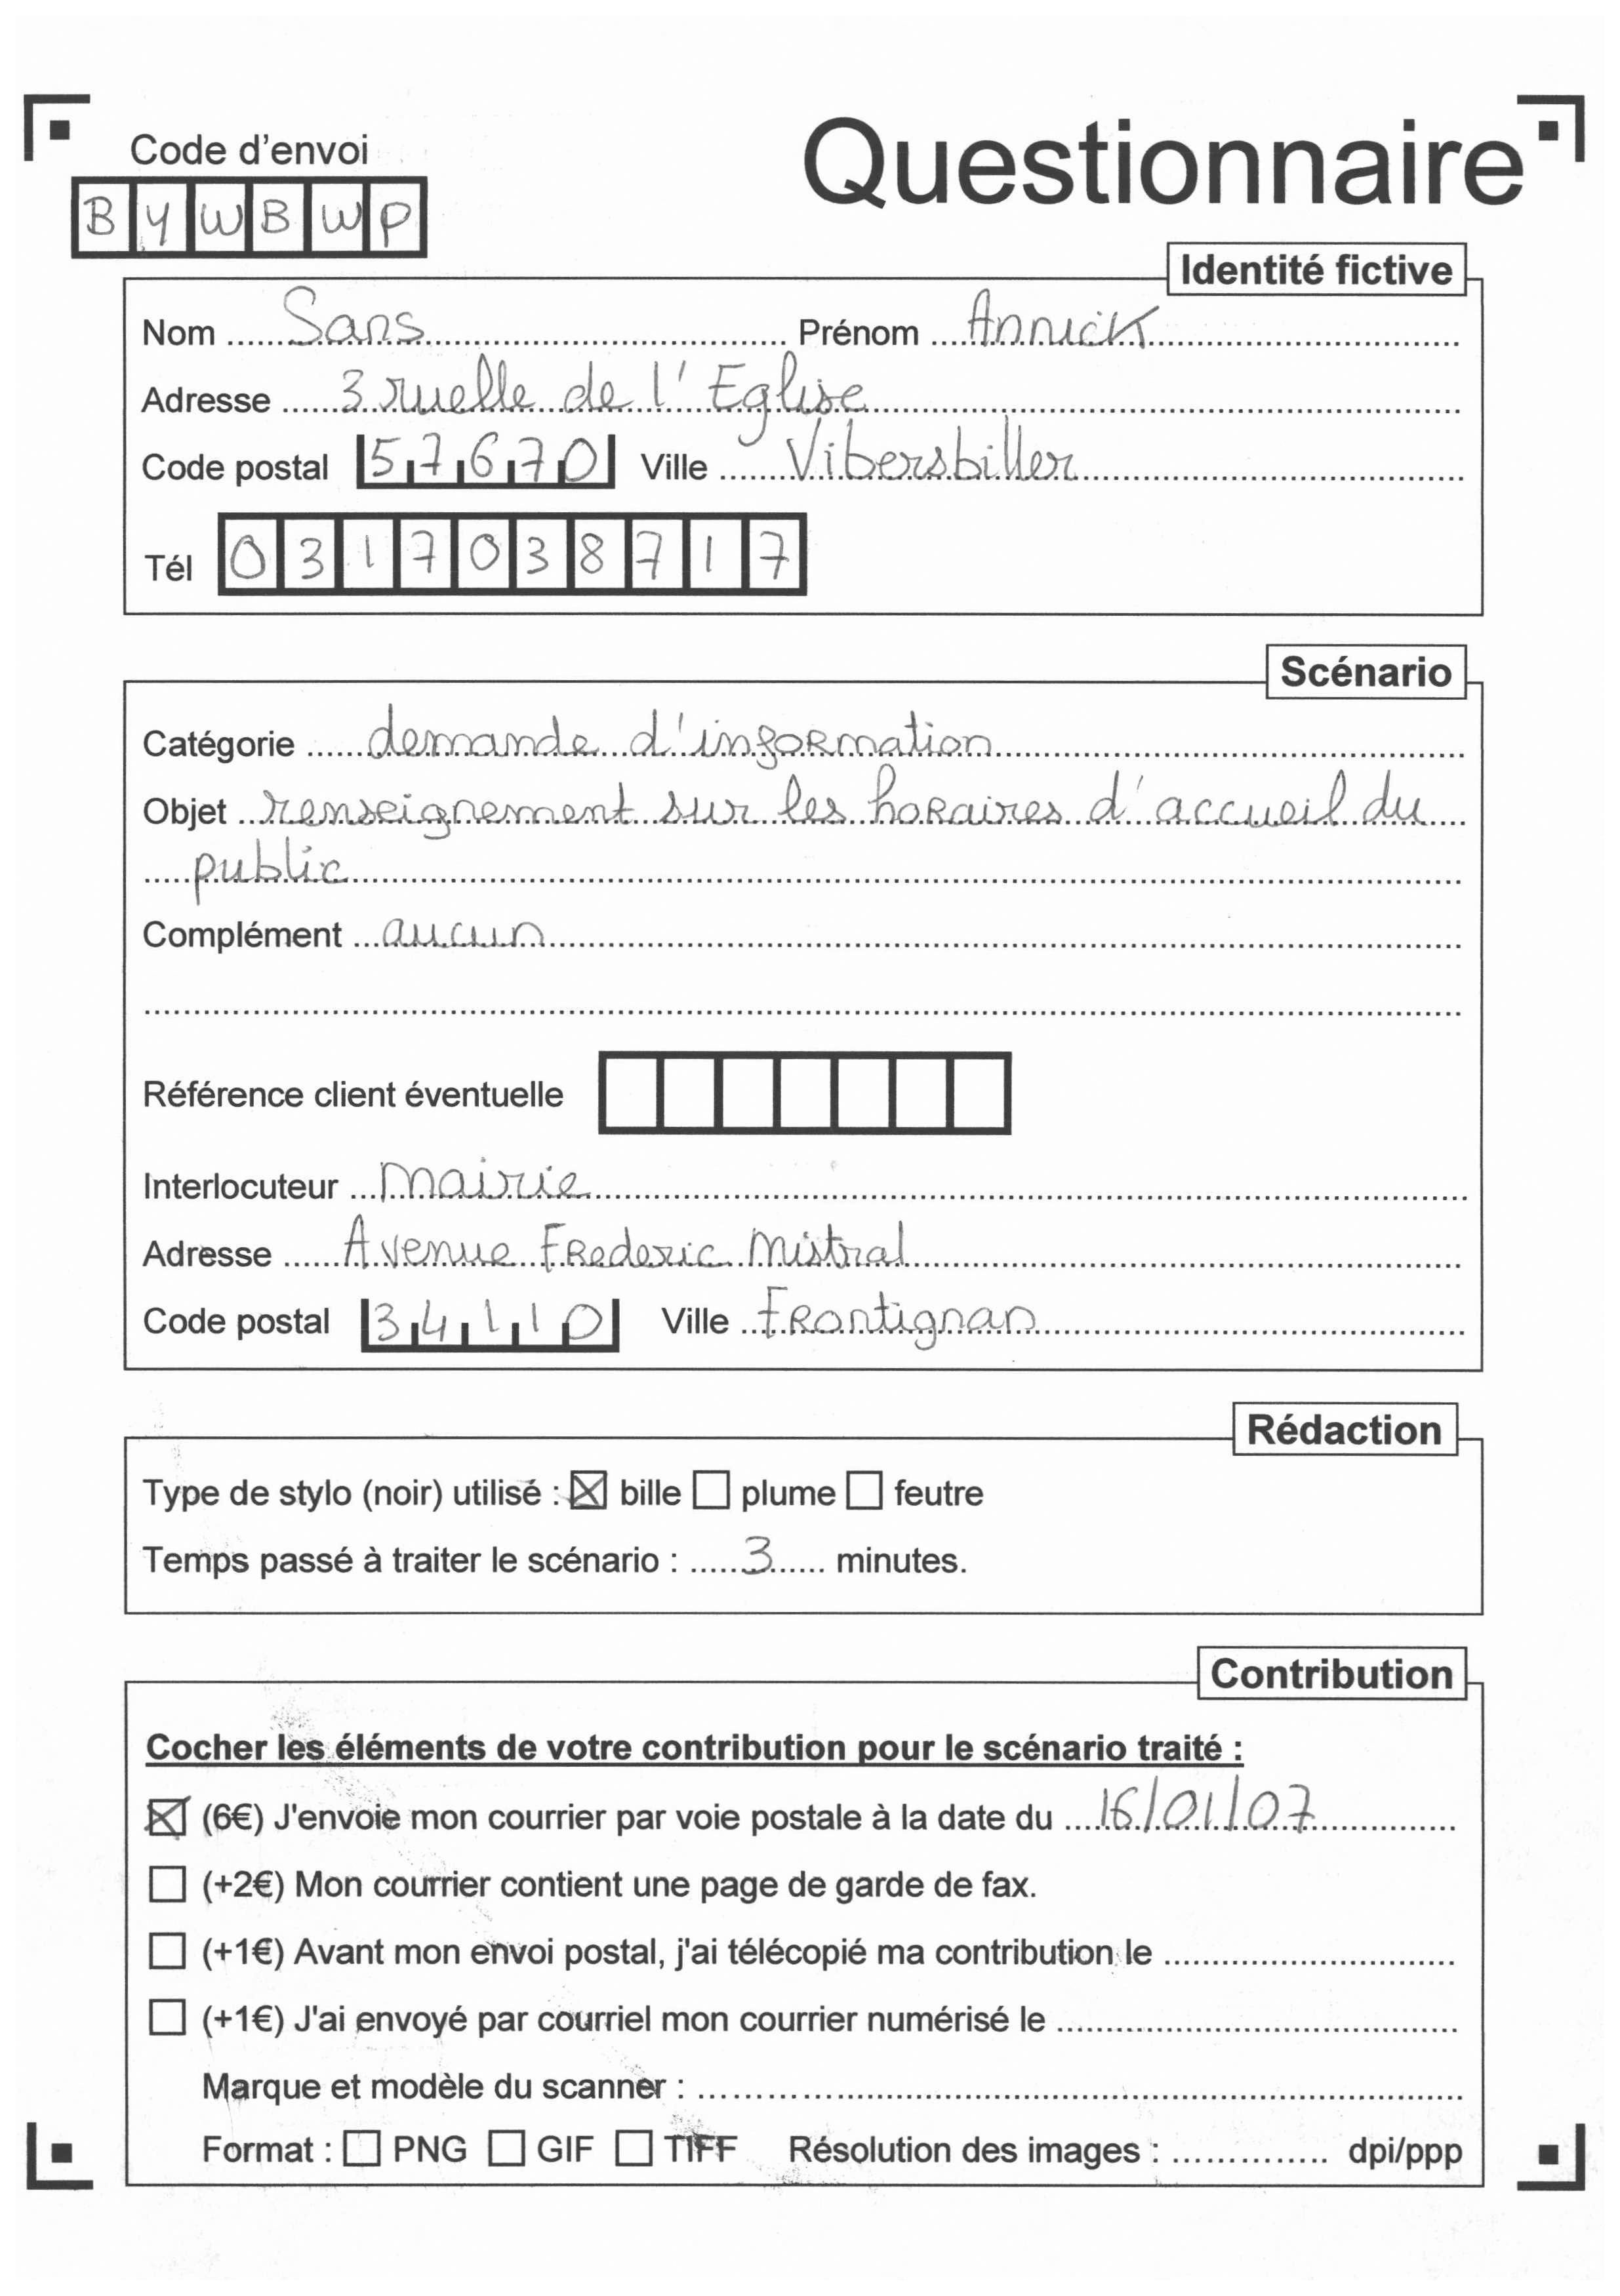 Code d'envoi
Questionnaire
BYWBWP
Identité fictive
Nom Sans Prénom Annick
Adresse 3 ruelle de l'Eglise
Code postal 57670 Ville Vibersbiller
Tél 0317038717
Scénario
Catégorie demande d'information
Objet renseignement sur les horaires d'accueil du
public
Complément aucun
Référence client éventuelle
Interlocuteur Mairie
Adresse Avenue Frederic Mistral
Code postal 34110 Ville Frontignan
Rédaction
Type de stylo (noir) utilisé : ☒ bille ☐ plume ☐ feutre
Temps passé à traiter le scénario : 3 minutes.
Contribution
Cocher les éléments de votre contribution pour le scénario traité :
☒ (6€) J'envoie mon courrier par voie postale à la date du 16/01/07
☐ (+2€) Mon courrier contient une page de garde de fax.
☐ (+1€) Avant mon envoi postal, j'ai télécopié ma contribution le
☐ (+1€) J'ai envoyé par courriel mon courrier numérisé le
Marque et modèle du scanner :
Format : ☐ PNG ☐ GIF ☐ TIFF Résolution des images : dpi/ppp